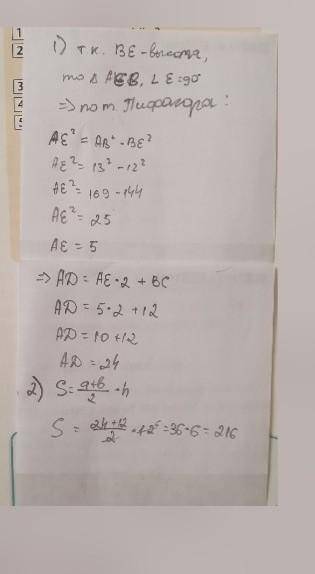 1
2
3
4
1) т.к. BE - высота,
то Δ AEB, ∠E = 90
=> по т. Пифагора:
AE² = AB² - BE²
AE² = 13² - 12²
AE² = 169 - 144
AE² = 25
AE = 5
=> AD = AE · 2 + BC
AD = 5 · 2 + 12
AD = 10 + 12
AD = 24
2) S = a+b/2 · h
S = 24+12/2 · 12⁶ = 36 · 6 = 216